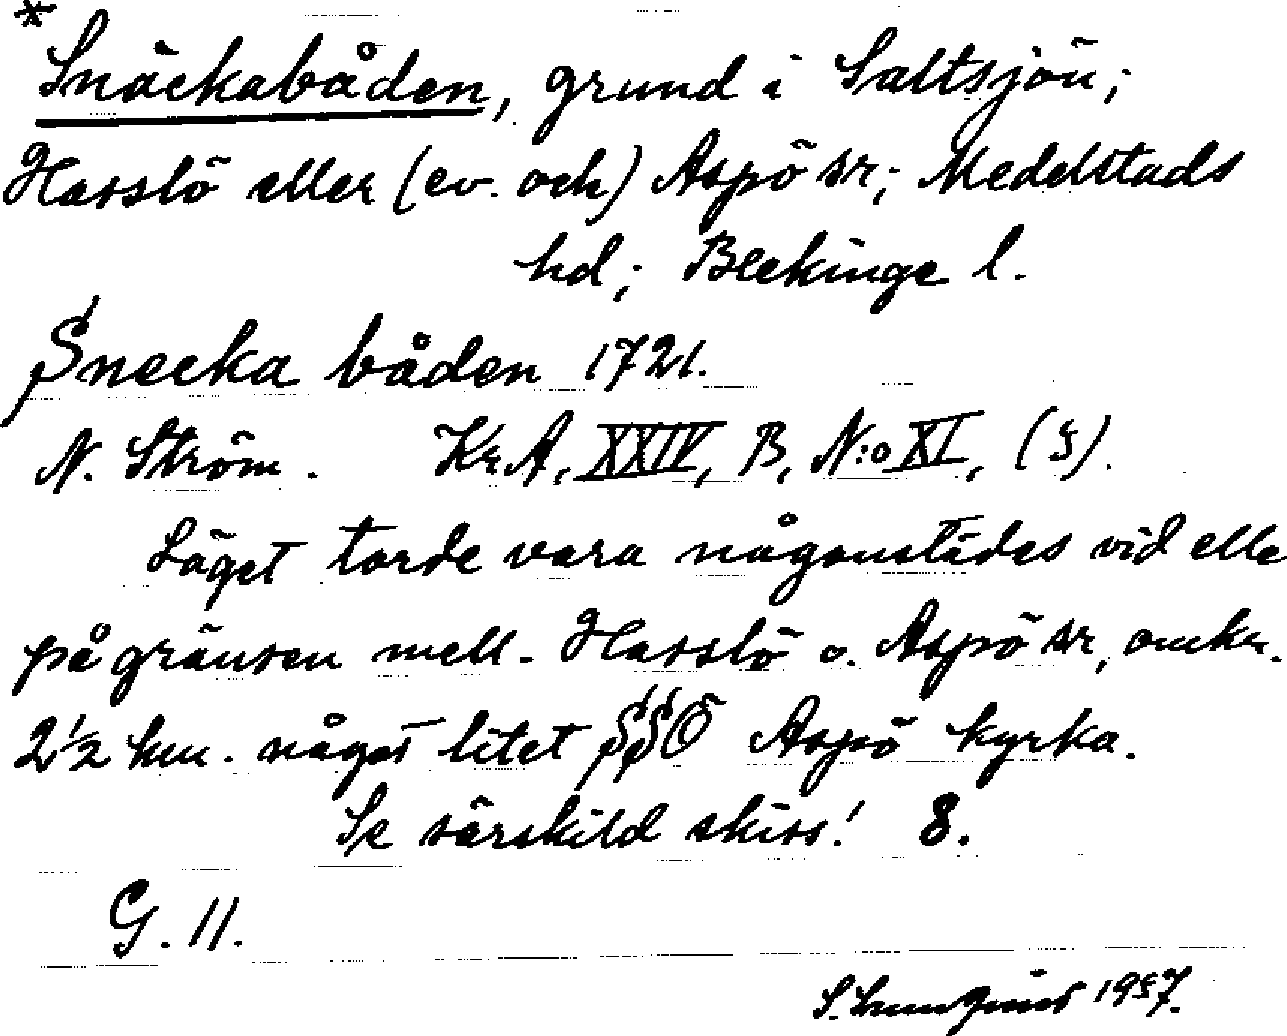 *
Snäckabåden, grund i Saltsjön;
Hasslö eller (ev. och) Aspö sr; Medelstads
hd; Blekinge l.
Snecka båden 1721.
N. Ström. KrA, XXIV, B, N:o XI, (5).
Läget torde vara någonstädes vid elle
på gränsen mell. Hasslö o. Aspö sr, omkr.
2½ km. något litet SSÖ Aspö kyrka.
Se särskild skiss! 8.
G. 11.
S. Lundquist 1957.